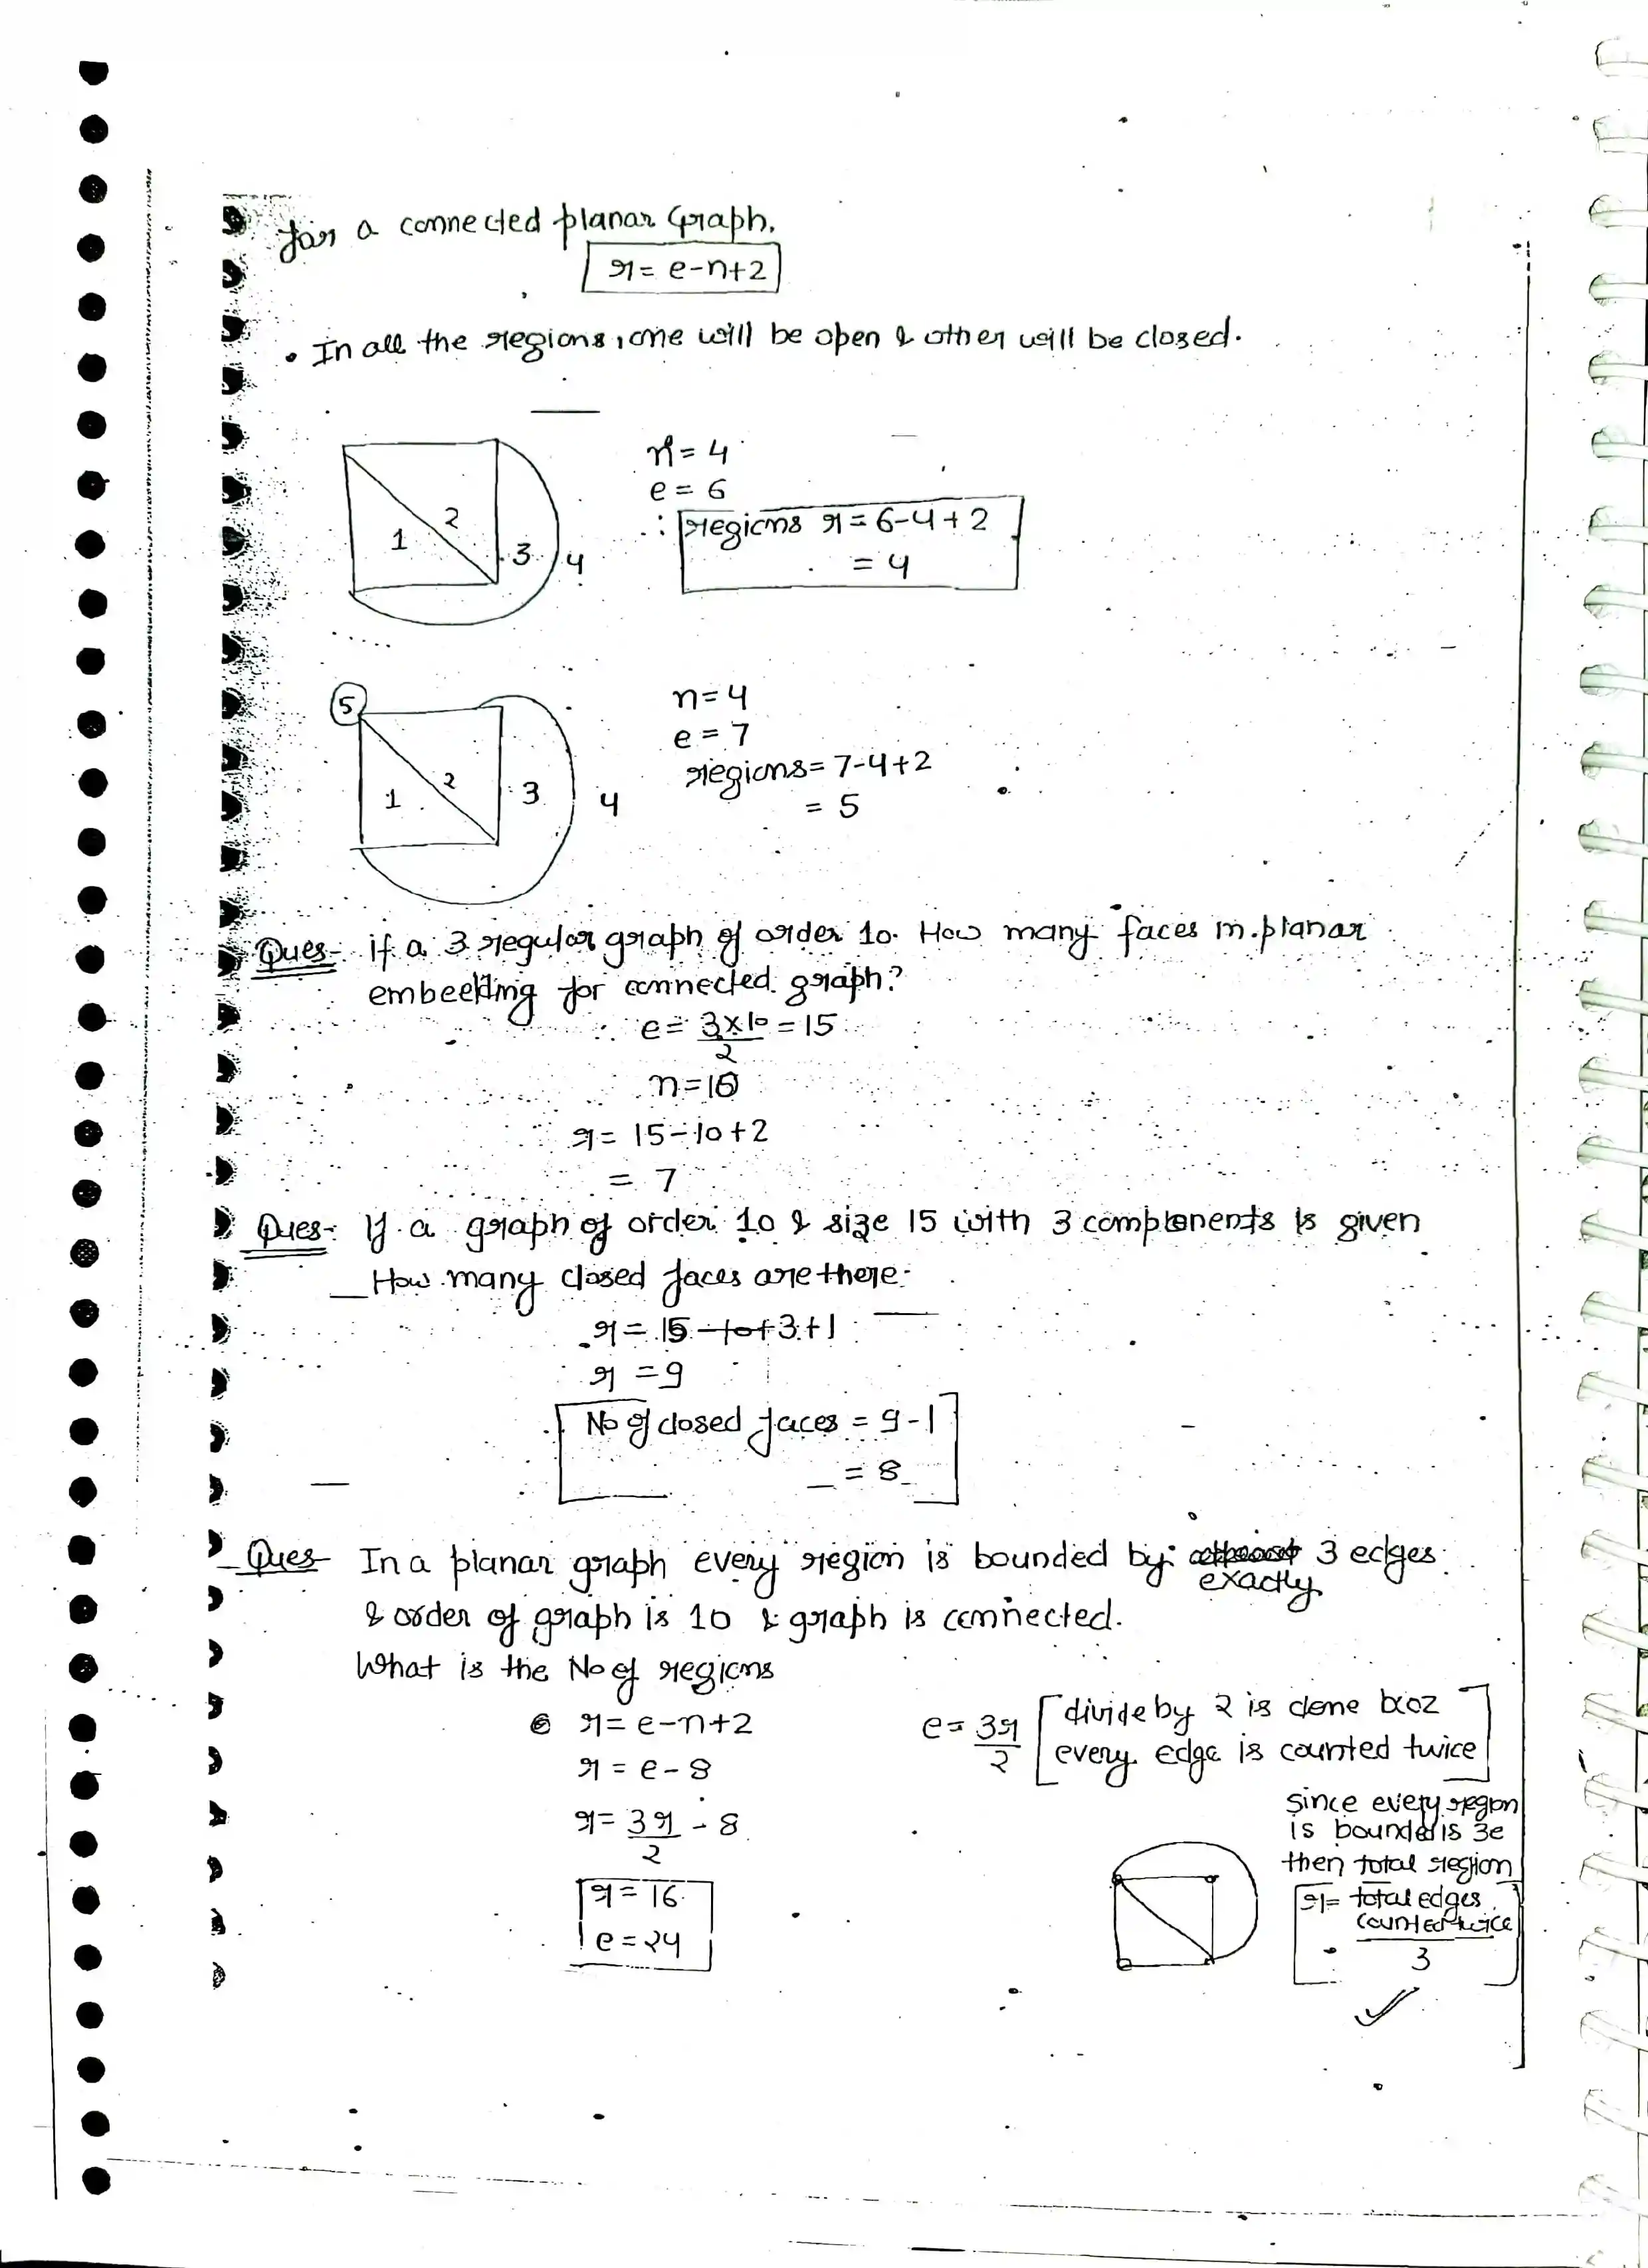 for a connected planar Graph.
r = e-n+2
• In all the regions, one will be open & other will be closed.
n = 4
e = 6
∴ regions r = 6-4+2
= 4
1 2 3 4
5
n=4
e = 7
regions = 7-4+2
= 5
1 2 3 4
Ques- if a 3 regular graph of order 10. How many faces in planar
embedding for connected graph?
∴ e = 3x10/2 = 15
n=10
r = 15-10+2
= 7
Ques- If a graph of order 10 & size 15 with 3 components is given
How many closed faces are there-
r = 15-10+3+1
r = 9
No of closed faces = 9-1
= 8
Ques In a planar graph every region is bounded by exactly 3 edges
& order of graph is 10 & graph is connected.
What is the No of regions
r = e-n+2
r = e-8
r = 3r/2 - 8
r = 16
e = 24
e = 3r/2 [divide by 2 is done bcoz
every edge is counted twice]
since every region
is bounded is 3e
then total region
r = total edges
counted twice
3